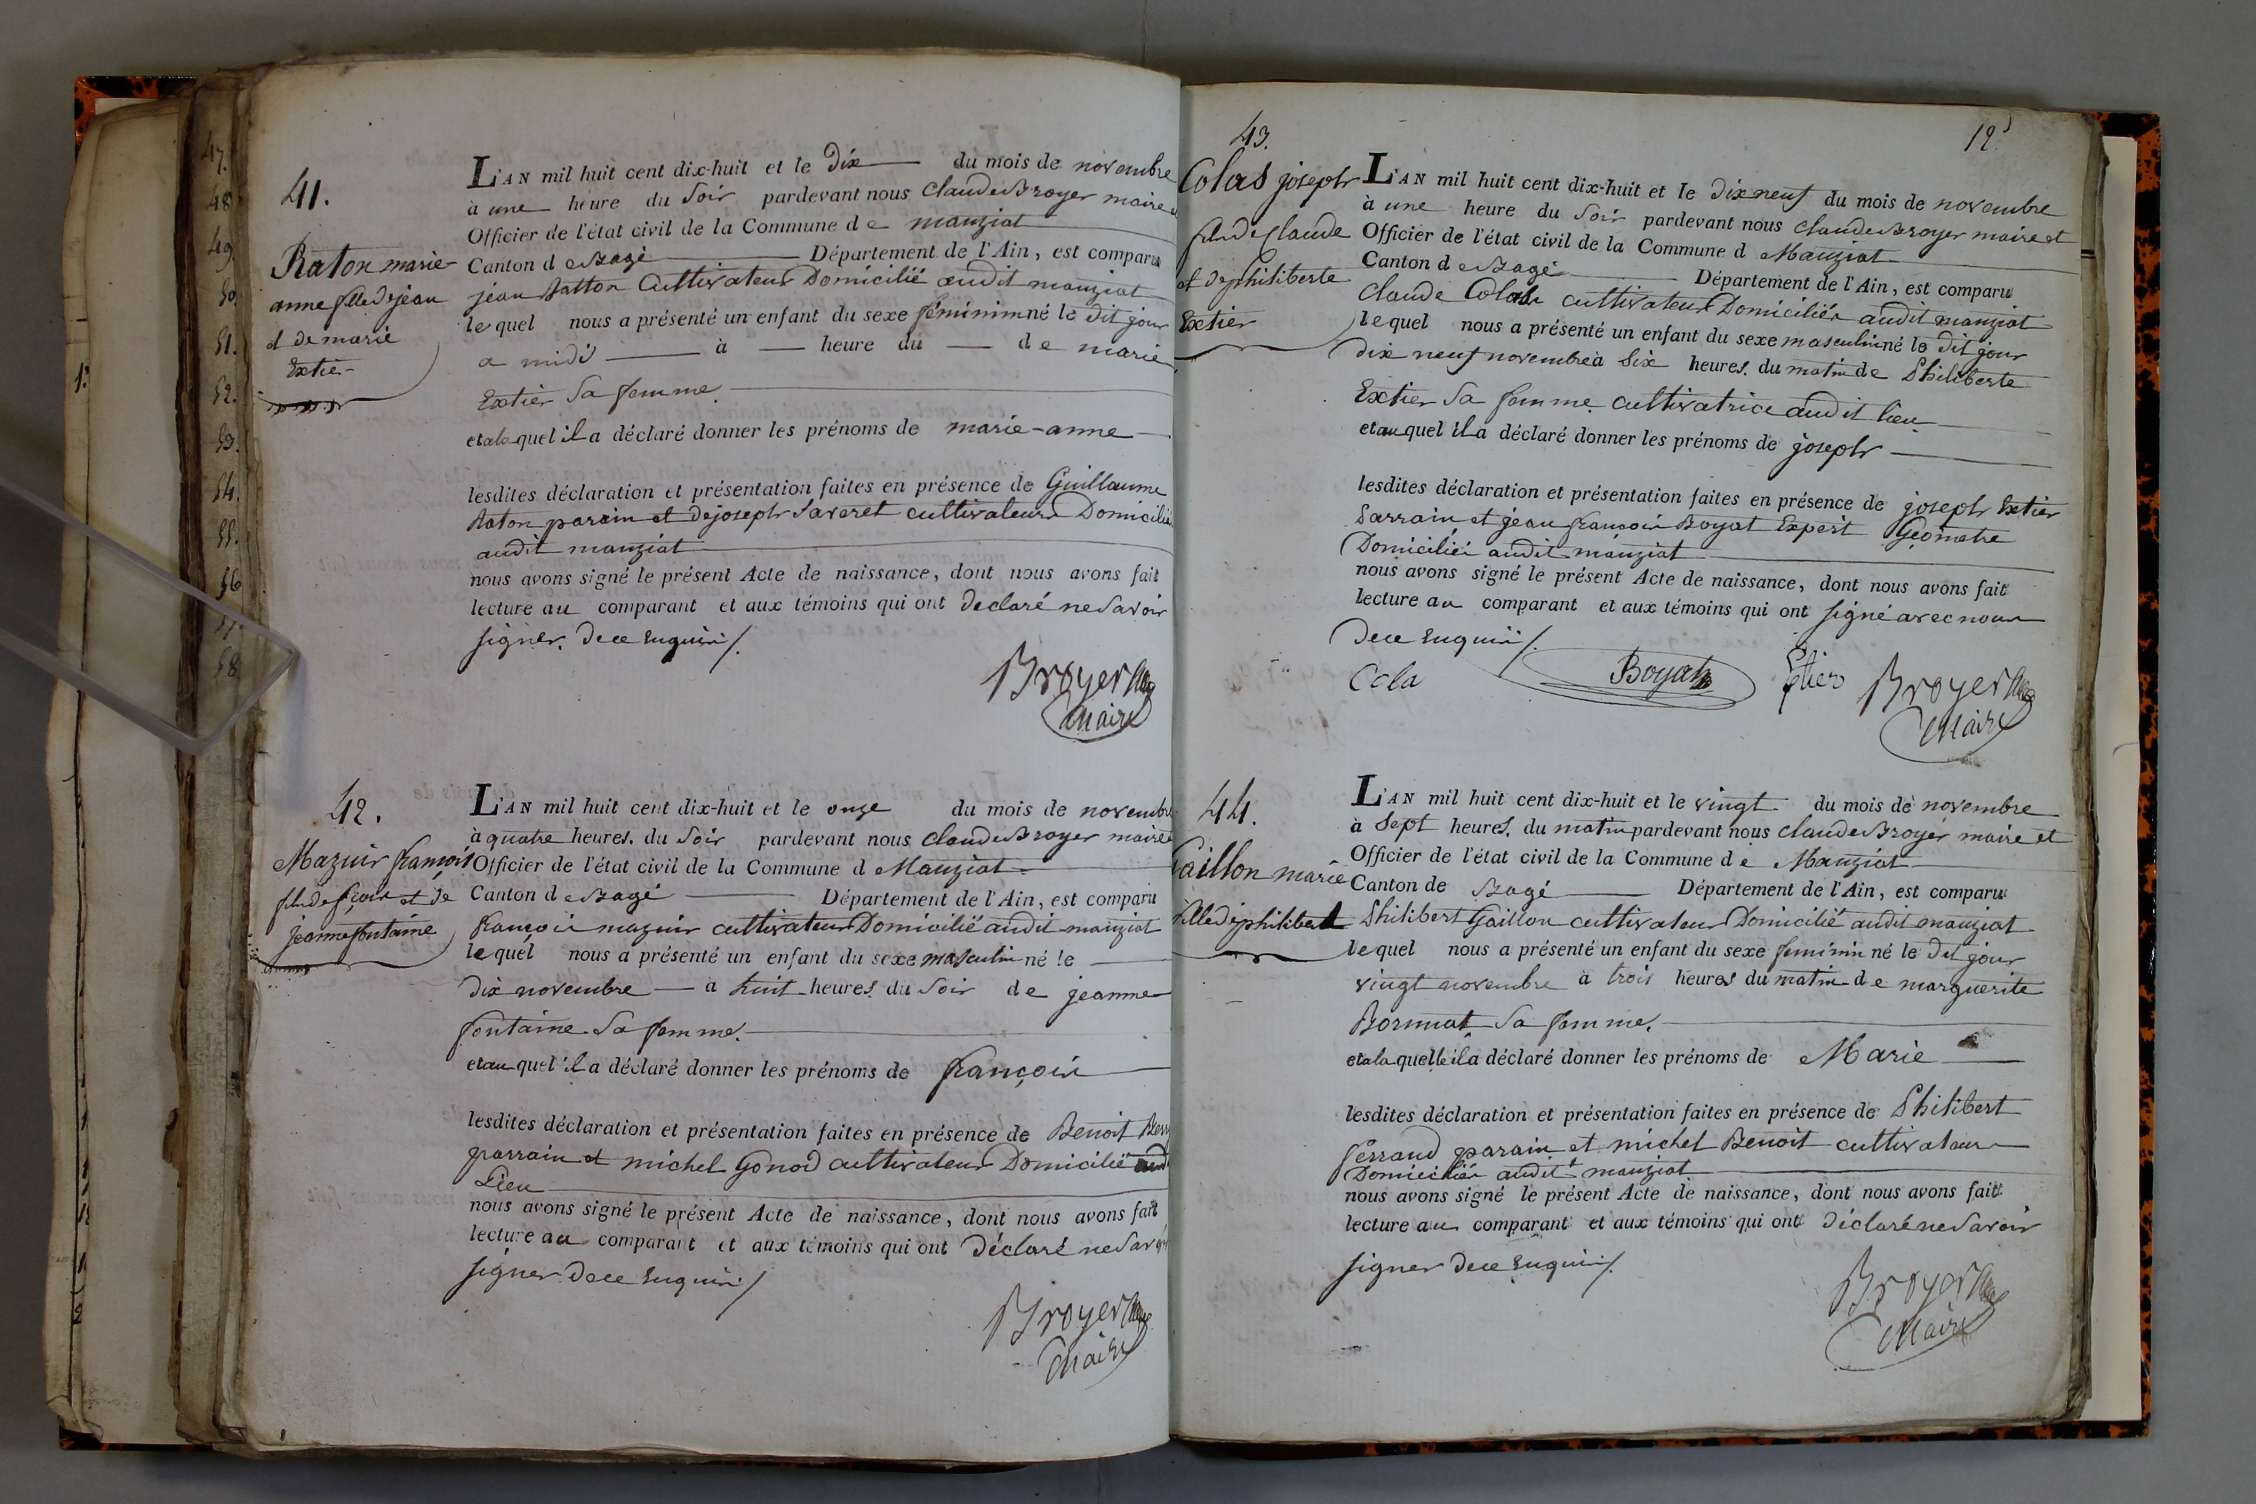 41.
Raton marie
anne fille de jean
et de marie
Extier
L'AN mil huit cent dix-huit et le Dix du mois de novembre
à une heure du Soir pardevant nous Claude Broyer maire
Officier de l'état civil de la Commune de manziat
Canton de Bagé Département de l'Ain, est comparu
jean Ratton Cultivateur Domicilié audit manziat
lequel nous a présenté un enfant du sexe féminin né le dit jour
a midi à heure du de marie
Extier Sa femme.
et a la quel il a déclaré donner les prénoms de marie-anne
lesdites déclaration et présentation faites en présence de Guillaume
Raton parain et de joseph Saveret cultivateurs Domicilié
audit manziat
nous avons signé le présent Acte de naissance, dont nous avons fait
lecture au comparant et aux témoins qui ont declaré ne Savoir
signer. De ce Enquis /.
Broyer
Maire
42.
Mazuir françois
fils de fçois et de
jeanne fontaine
L'AN mil huit cent dix-huit et le onze du mois de novembre
à quatre heures. du Soir pardevant nous Claude Broyer maire
Officier de l'état civil de la Commune d Manziat
Canton de Bagé Département de l'Ain, est comparu
françois mazuir cultivateur Domicilié audit manziat
lequel nous a présenté un enfant du sexe masculin né le
Dix novembre à huit heures. du Soir de jeanne
fontaine Sa femme.
et au quel il a déclaré donner les prénoms de françois
lesdites déclaration et présentation faites en présence de Benoit
parrain et michel Gonod cultivateurs Domicilié
Lieu
nous avons signé le présent Acte de naissance, dont nous avons fait
lecture au comparant et aux témoins qui ont Déclaré ne Savoir
signer De ce Enquis /
Broyer
Maire
12
43.
Colas joseph
fils de Claude
et de philiberte
Extier
L'AN mil huit cent dix-huit et le Dix neuf du mois de novembre
à une heure du Soir pardevant nous Claude Broyer maire et
Officier de l'état civil de la Commune d Manziat
Canton de Bagé Département de l'Ain, est comparu
Claude Colas cultivateur Domiciliés audit manziat
lequel nous a présenté un enfant du sexe masculin né le Dit jour
Dix neuf novembre à Six heures. du matin de Philiberte
Extier Sa femme cultivatrice audit lieu
et au quel il a déclaré donner les prénoms de joseph
lesdites déclaration et présentation faites en présence de joseph Extier
Parrain et jean françois Boyat Expert Géomètre
Domiciliés audit manziat
nous avons signé le présent Acte de naissance, dont nous avons fait
lecture au comparant et aux témoins qui ont signé avec nous
De ce Enquis /.
Cola Boyat Etier Broyer
Maire
44.
Gaillon marie
fille de philibert
L'AN mil huit cent dix-huit et le vingt du mois de novembre
à Sept heures. du matin pardevant nous Claude Broyer maire et
Officier de l'état civil de la Commune de Manziat
Canton de Bagé Département de l'Ain, est comparu
Philibert Gaillon cultivateur Domicilié audit manziat
lequel nous a présenté un enfant du sexe féminin né le Dit jour
vingt novembre à trois heures du matin de marguerite
Bornuat Sa femme.
et a la quelle il a déclaré donner les prénoms de Marie
lesdites déclaration et présentation faites en présence de Philibert
ferraud parain et michel Benoit cultivateurs
Domiciliés audit manziat
nous avons signé le présent Acte de naissance, dont nous avons fait
lecture au comparant et aux témoins qui ont Déclaré ne Savoir
signer De ce Enquis /.
Broyer
Maire
47.
48
49
50.
51.
52.
53.
54.
55.
56
58.